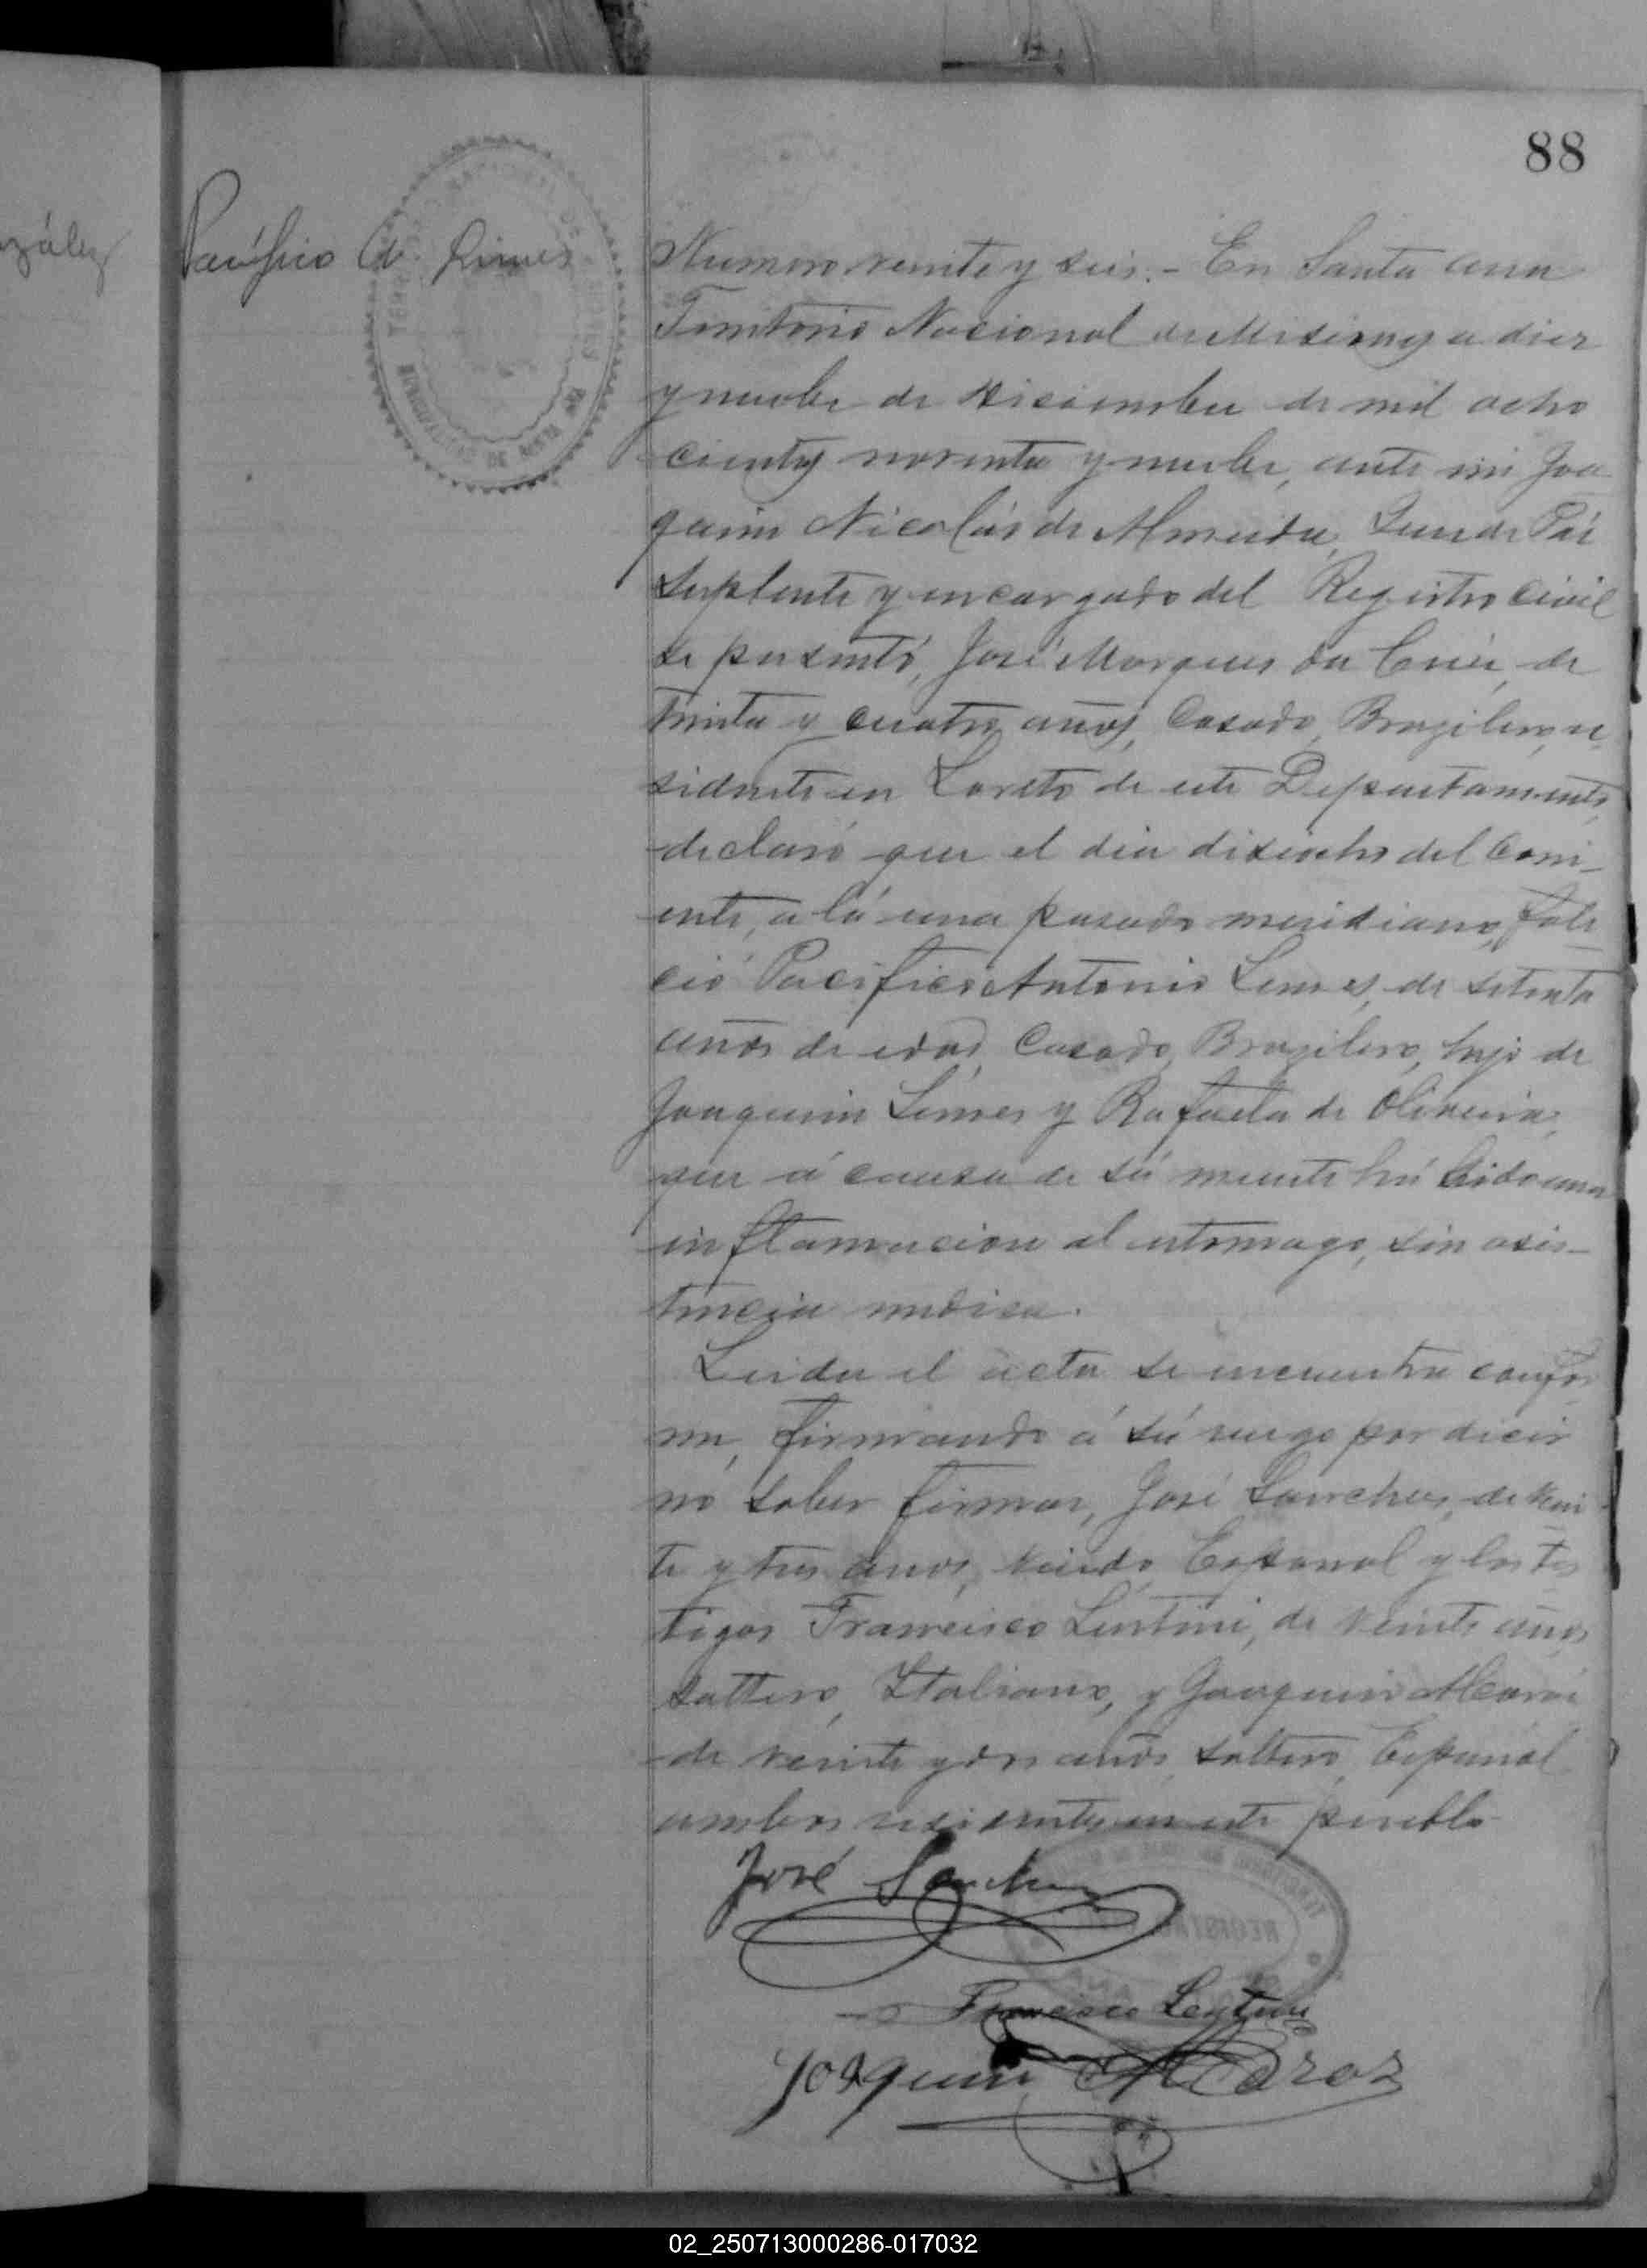 88
zález
Pacífico A. Limes
Numero veinte y seis.- En Santa Ana
Territorio Nacional de Misiones a diez
y nuebe de Diciembre de mil ocho
cientos noventa y nuebe, ante mi Joa
quin Nicolás de Almeida, Juez de Páz
Suplente y encargado del Registro Civil
se presentó, José Marques da Cruz, de
trinta y cuatro años, Casado, Brazilero, re
sidente en Loreto de este Departamento,
declaró que el dia disiocho del Corri-
ente, a lá una pasado meridiano, fale
ció Pacifico Antonio Limes, de setenta
años de edad, Casado, Brazilero, hijo de
Joaquin Limes y Rafaela de Oliveira,
que á causa de sú muerte há sido una
inflamacion al estomago, sin asis-
tencia medica.
Leida el acta se encuentra confor
me, firmando á sú ruego por dicir
nó saber firmar, José Sanches, de vein
te y tres años, Viudo, Español y los tes
tigos Francisco Lentini, de veinte años,
soltero, Italiano, y Joaquin
de veinte y dos años, soltero, Español
ambos residentes en este pueblo
José Sanchez
REGISTRO
Francisco Lentini
Joaquin
02_250713000286-017032